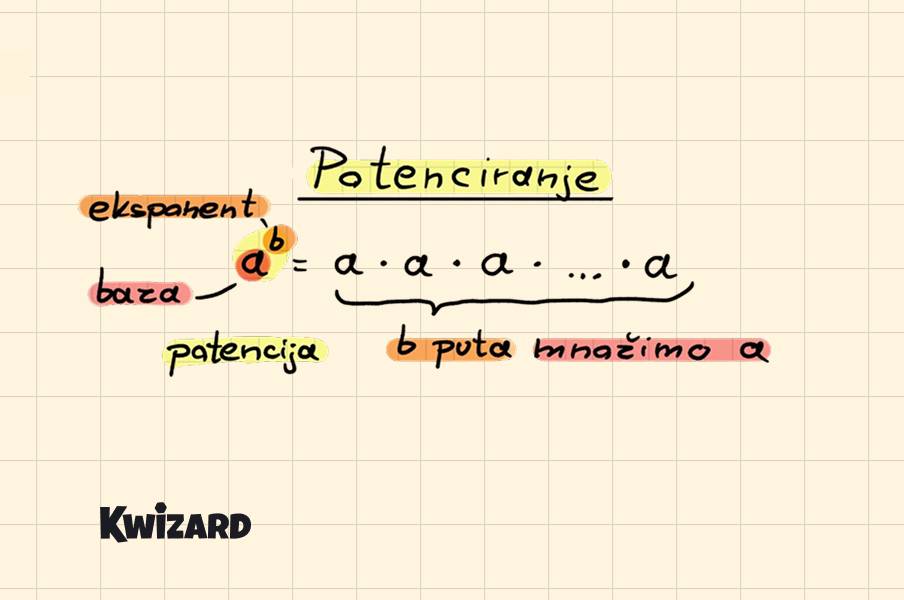 Potenciranje
eksponent
aᵇ = a · a · a · ... · a
baza
potencija
b puta množimo a
KWIZARD